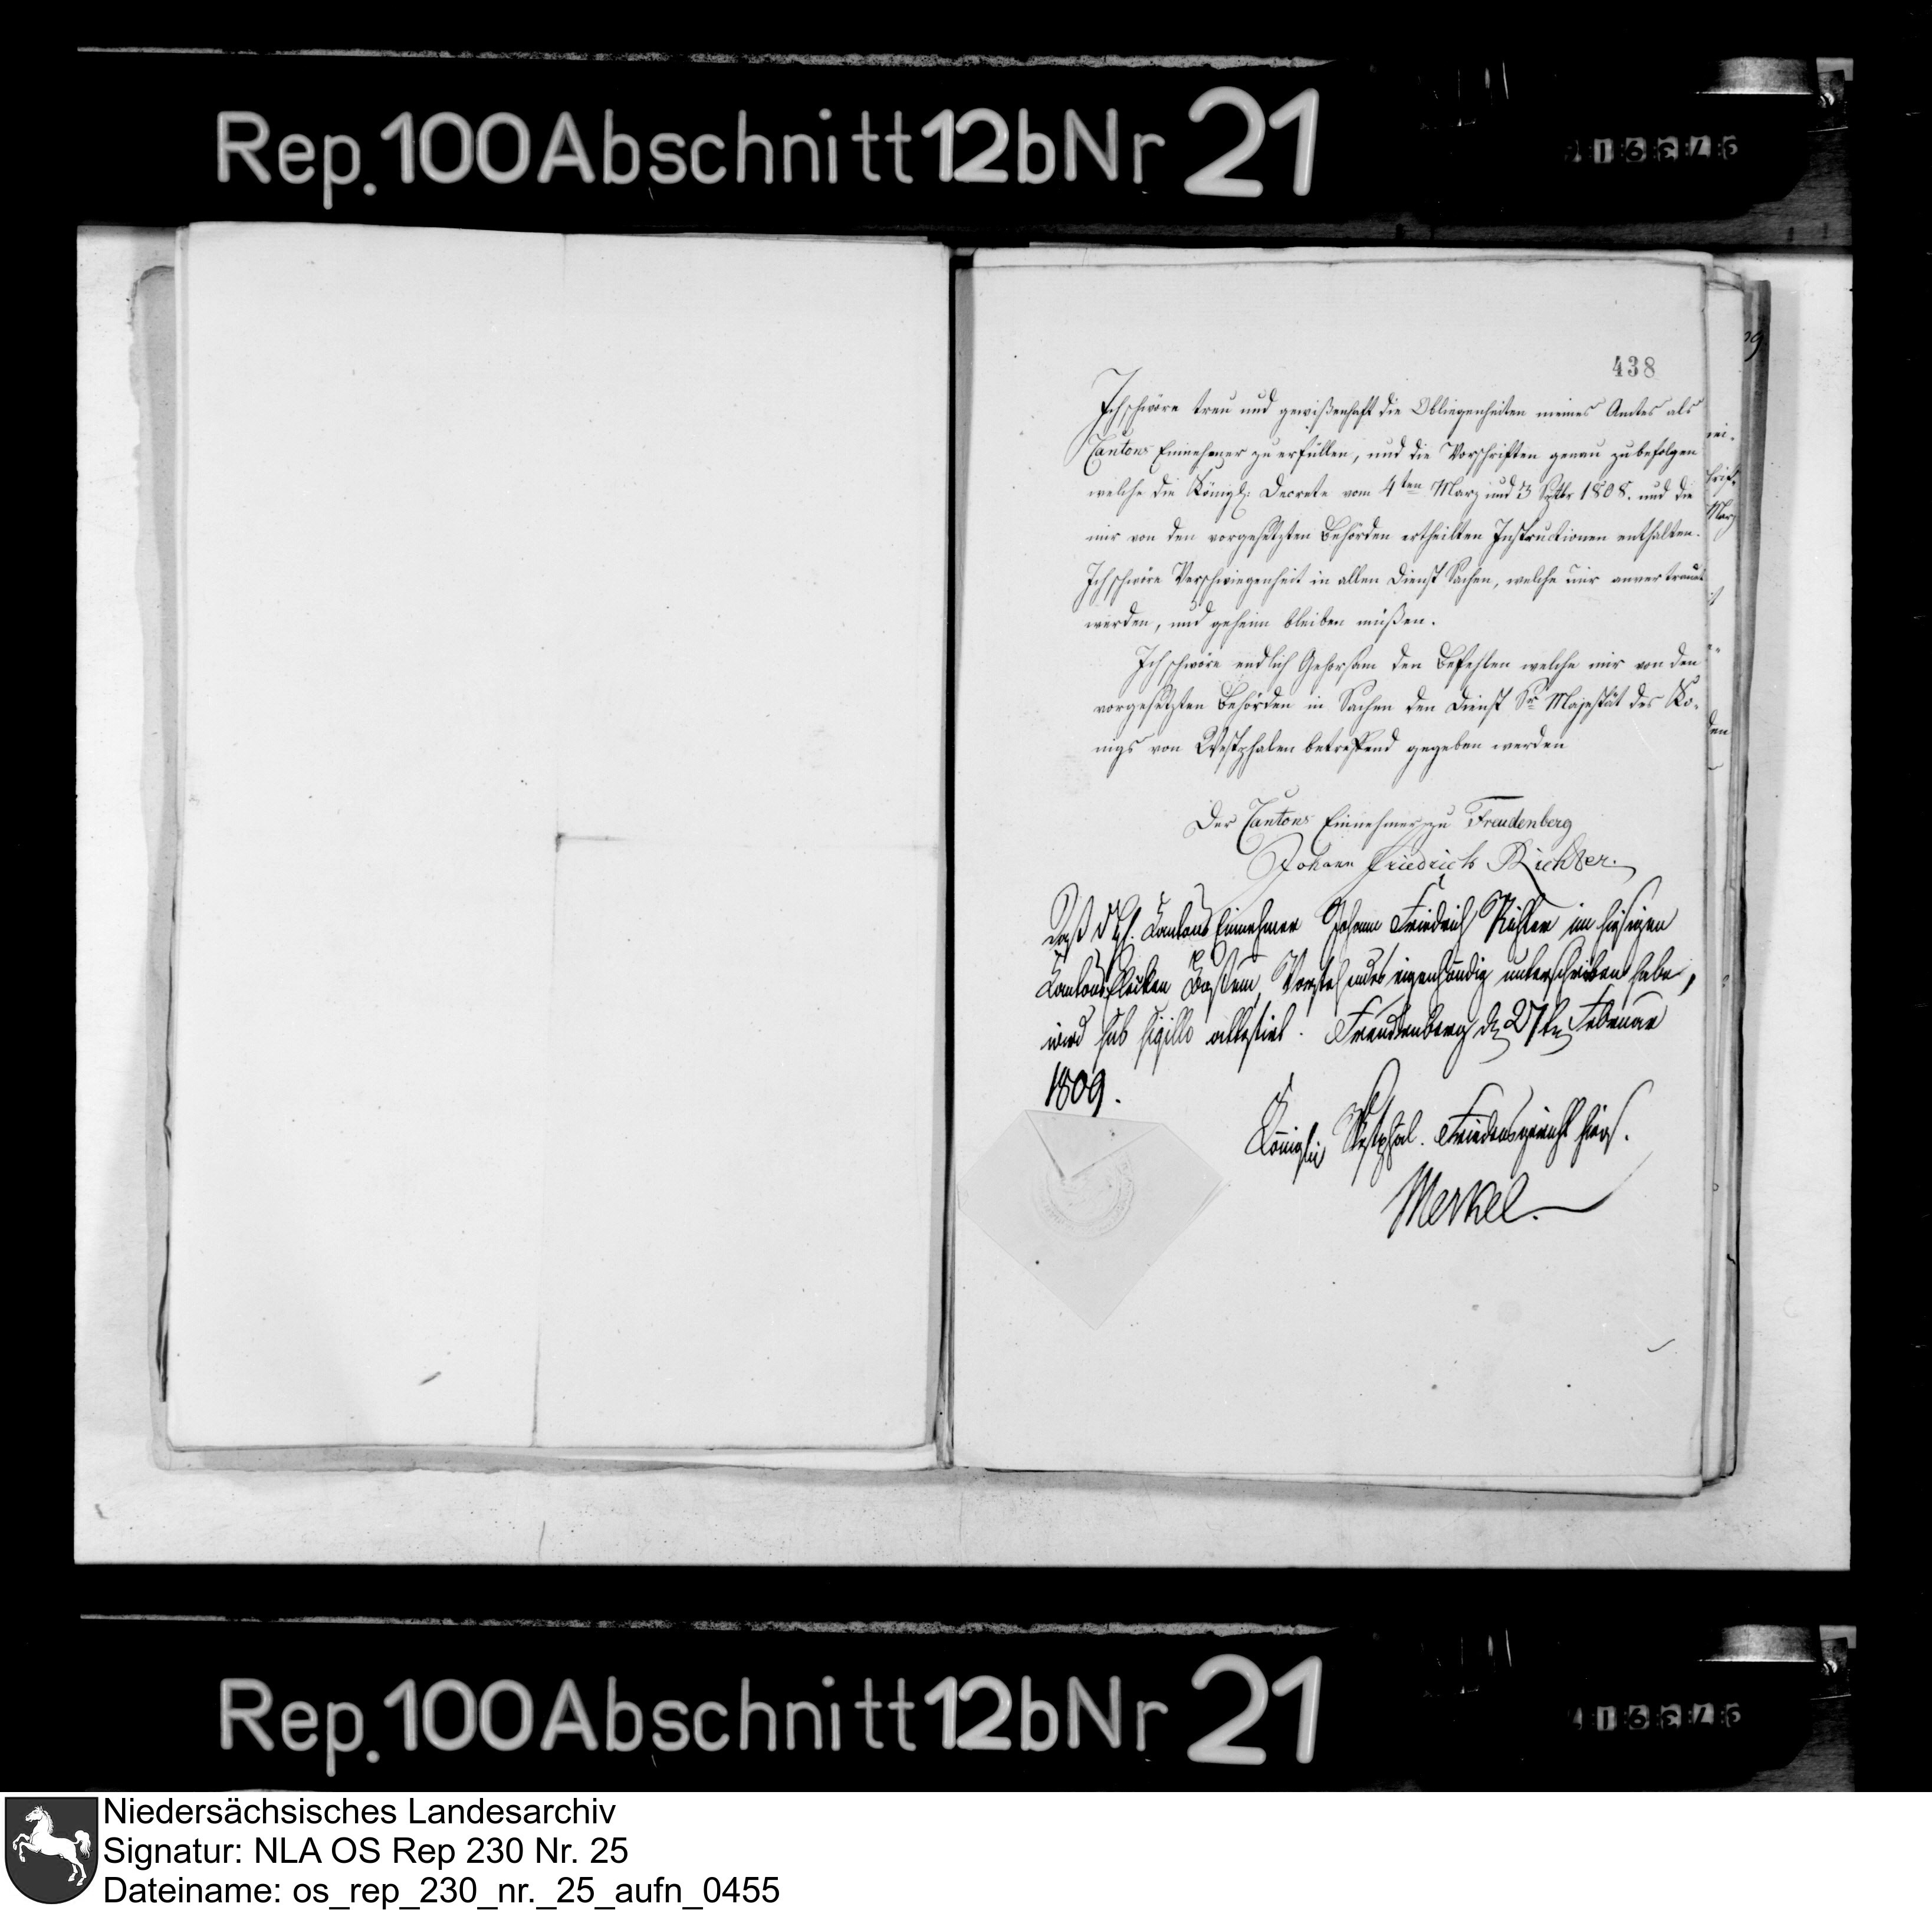 Rep. 100 Abschnitt 12b Nr 21
438
Ich schwöre treu und gewißenhaft die Obliegenheiten meines Amtes als
Cantons Einnehmer zu erfüllen, und die Vorschriften genau zu befolgen
welche die Königl: Decrete vom 4ten Marz und 3 Sptbr 1808. und die
mir von den vorgesetzten Behörden ertheilten Instructionen enthalten.
Ich schwöre Verschwiegenheit in allen Dienst Sachen, welche mir anvertraut
werden, und geheim bleiben müßen.
Ich schwöre endlich Gehorsam den Befehlen welche mir von den
vorgesetzten Behörden in Sachen den Dienst Sr Majestät des Kö-
nigs von Westphalen betreffend gegeben werden
Der Cantons Einnehmer zu Freudenberg
Johann Friedrich Richter.
Daß Cantons Einnehmer Johann Friedrich Richter im hiesigen
Cantons Flecken Baßum, Vorstehendes eigenhändig unterschrieben habe,
wird sub sigillo attestirt. Freudenberg d 27ten Februar
1809.
Königlich Westphäl. Friedensgericht hies.
Merkel.
Rep. 100 Abschnitt 12b Nr 21
Niedersächsisches Landesarchiv
Signatur: NLA OS Rep 230 Nr. 25
Dateiname: os_rep_230_nr._25_aufn_0455